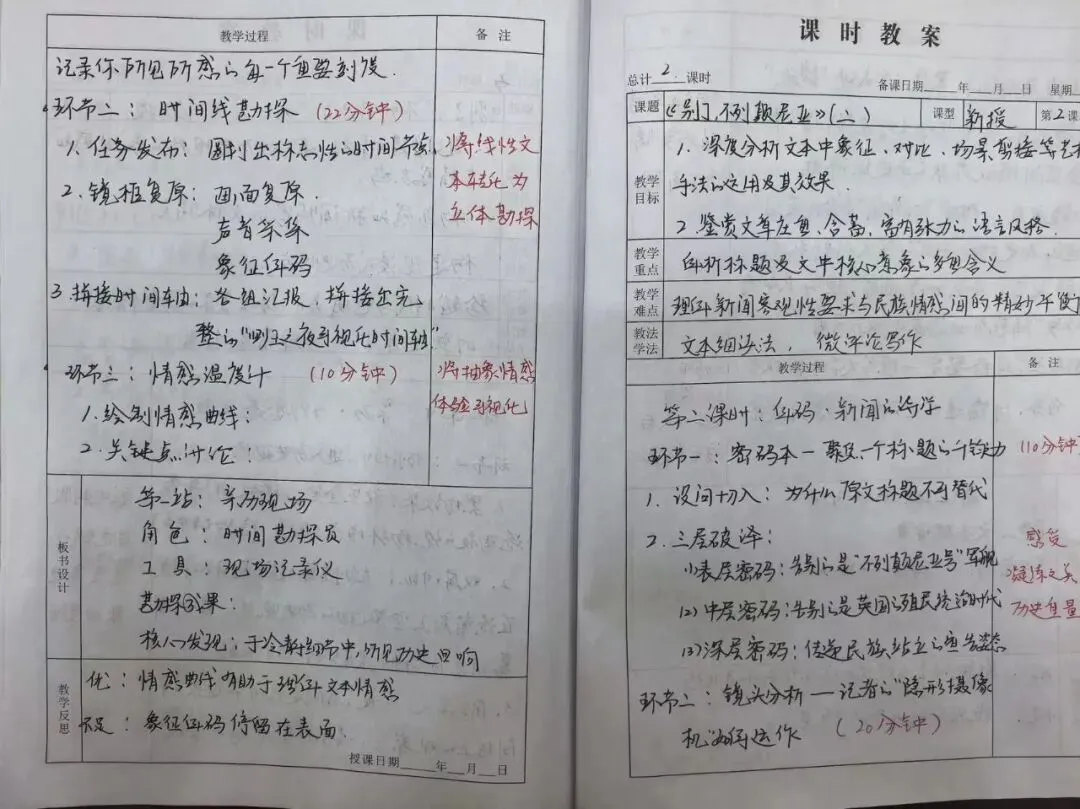 教学过程 备注
记录你所见所感的每一个重要刻度.
环节二：时间线勘探 (22分钟)
1.任务发布：圈划出标志性的时间节点
将线性文
2.镜框复原：画面复原
本转化为
声音
立体勘探
象征解码
3.拼接时间轴：各组汇报，拼接出完
整的"可视化时间轴"
环节三：情感温度计 (10分钟)
将抽象情感
体验可视化
1.绘制情感曲线：
2.关键点讨论：
板书设计
第一站：亲历现场
角色：时间勘探员
工具：现场记录仪
勘探成果：
核心发现：于冷静细节中，听见历史回响
教学反思
优：情感曲线有助于理解文本情感
不足：象征解码停留在表面.
授课日期 年 月 日
课时教案
总计2课时 备课日期 年 月 日 星期
课题 《别了，不列颠尼亚》(二) 课型 新授 第2课
教学目标
1.深度分析文本中象征、对比、场景剪接等艺
手法的运用及其效果.
2.鉴赏文章庄重、含蓄、富有张力的语言风格.
教学重点 解析标题及文中核心意象的多重含义
教学难点 理解新闻客观性要求与民族情感间的精妙平衡
教法学法 文本细读法，微评论写作
教学过程 备注
第二课时：解码：新闻的诗学
环节一：密码本一聚焦一个标题的千钧力 (10分钟
1.设问切入：为什么原文标题不可替代
2.三层破译：
感受
(1)表层密码：告别的是"不列颠尼亚号"军舰
凝练之美
(2)中层密码：告别的是英国的殖民统治时代
历史重量
(3)深层密码：传递民族站立的宣告姿态
环节二：镜头分析—记者的"隐形摄像
机"如何运作 (20分钟)